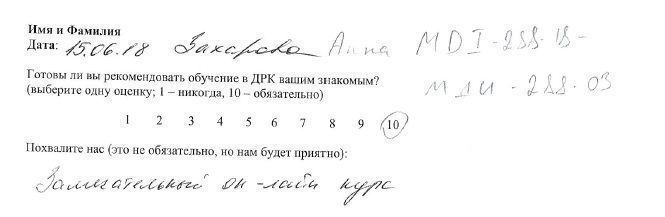 Имя и Фамилия
Дата: 15.06.18 Захарова Анна MDI-288-18-
Готовы ли вы рекомендовать обучение в ДРК вашим знакомым?
(выберите одну оценку; 1 – никогда, 10 – обязательно)
МДИ-288-03
1 2 3 4 5 6 7 8 9 10
Похвалите нас (это не обязательно, но нам будет приятно):
Замечательный он-лайн курс